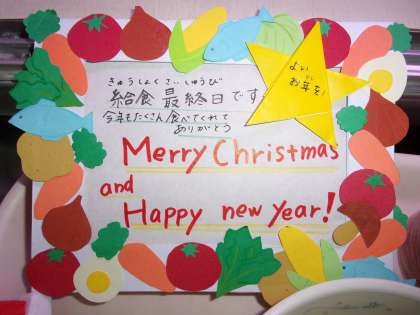 よい
お年を!
きゅうしょくさいしゅうび
給食最終日です
今年もたくさん食べてくれて
ありがとう
Merry Christmas
and
Happy new year!